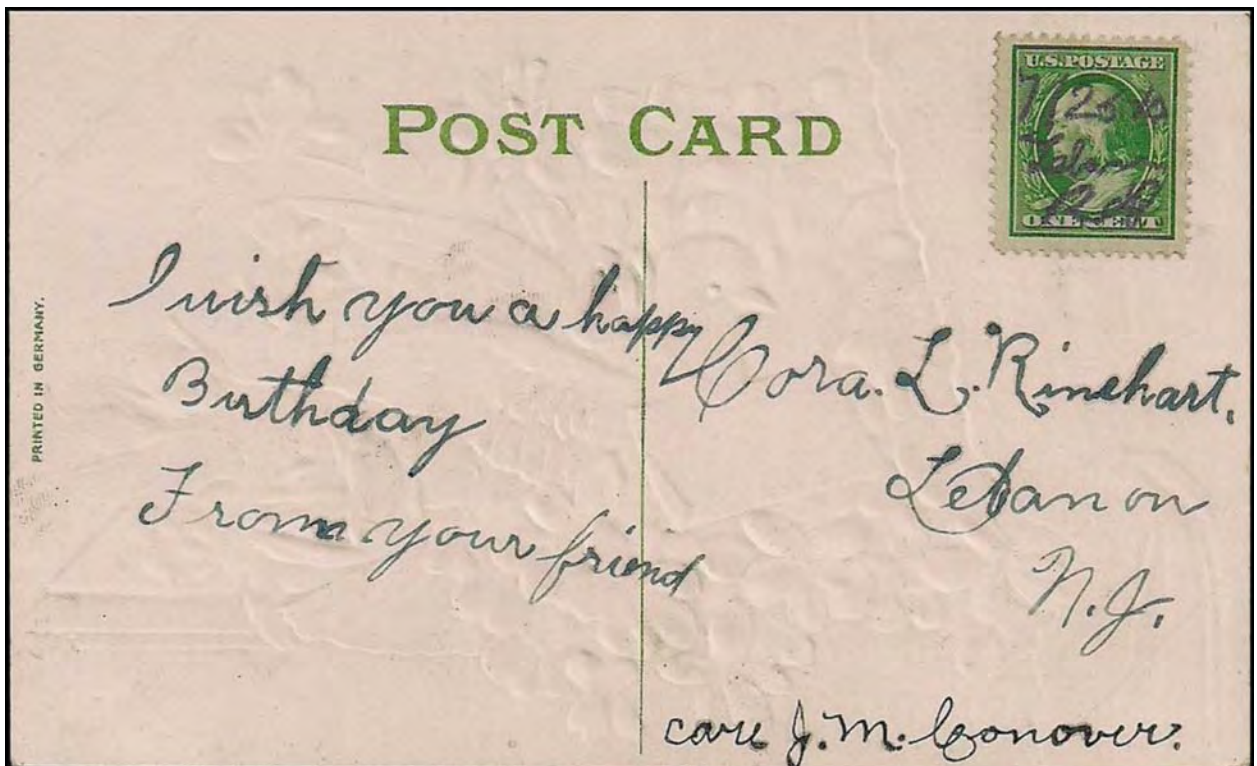 POST CARD
U.S.POSTAGE
7/23
ONE CENT
PRINTED IN GERMANY.
I wish you a happy
Birthday
From your friend
Cora. L. Rinehart.
Lebanon
N.J.
care J. M. Conover.